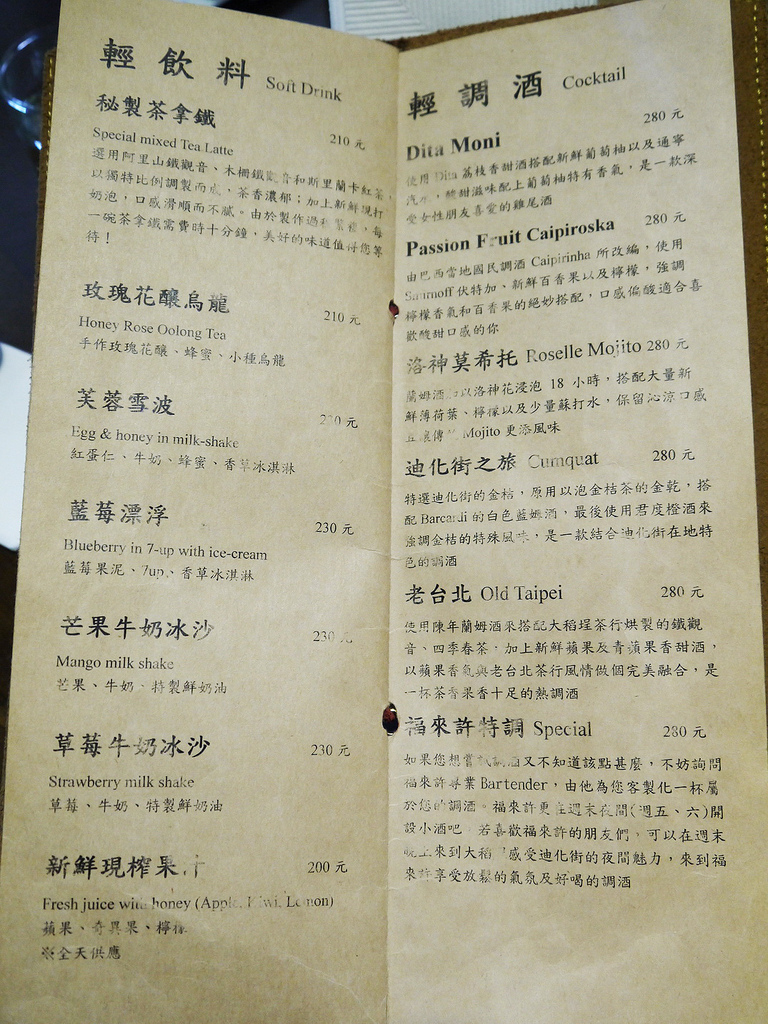 輕飲料 Soft Drink
秘製茶拿鐵 210 元
Special mixed Tea Latte
選用阿里山鐵觀音、木柵鐵觀音和斯里蘭卡紅茶,
以獨特比例調製而成,茶香濃郁;加上新鮮現打
奶泡,口感滑順而不膩。由於製作過程繁複,每
一碗茶拿鐵需費時十分鐘,美好的味道值得您等
待!
玫瑰花釀烏龍 210 元
Honey Rose Oolong Tea
手作玫瑰花釀、蜂蜜、小種烏龍
芙蓉雪波 元
Egg & honey in milk-shake
紅蛋仁、牛奶、蜂蜜、香草冰淇淋
藍莓漂浮 230 元
Blueberry in 7-up with ice-cream
藍莓果泥、7up、香草冰淇淋
芒果牛奶冰沙 230 元
Mango milk shake
芒果、牛奶、特製鮮奶油
草莓牛奶冰沙 230 元
Strawberry milk shake
草莓、牛奶、特製鮮奶油
新鮮現榨果汁 200 元
Fresh juice with honey (Apple, Kiwi, Lemon)
蘋果、奇異果、檸檬
※全天供應
輕調酒 Cocktail
Dita Moni 280 元
使用 Dita 荔枝香甜酒搭配新鮮葡萄柚以及通寧
汽水,酸甜滋味配上葡萄柚特有香氣,是一款深
受女性朋友喜愛的雞尾酒
Passion Fruit Caipiroska 280 元
由巴西當地國民調酒 Caipirinha 所改編,使用
Smirnoff 伏特加、新鮮百香果以及檸檬,強調
檸檬香氣和百香果的絕妙搭配,口感偏酸適合喜
歡酸甜口感的你
洛神莫希托 Roselle Mojito 280 元
蘭姆酒 以洛神花浸泡 18 小時,搭配大量新
鮮薄荷葉、檸檬以及少量蘇打水,保留沁涼口感
並讓傳統 Mojito 更添風味
迪化街之旅 Cumquat 280 元
特選迪化街的金桔,原用以泡金桔茶的金乾,搭
配 Barcardi 的白色藍姆酒,最後使用君度橙酒來
強調金桔的特殊風味,是一款結合迪化街在地特
色的調酒
老台北 Old Taipei 280 元
使用陳年蘭姆酒來搭配大稻埕茶行烘製的鐵觀
音、四季春茶,加上新鮮蘋果及青蘋果香甜酒,
以蘋果香氣與老台北茶行風情做個完美融合,是
一杯茶香果香十足的熱調酒
福來許特調 Special 280 元
如果您想嘗試調酒又不知道該點甚麼,不妨詢問
福來許專業 Bartender,由他為您客製化一杯屬
於您的調酒。福來許更在週末夜間(週五、六)開
設小酒吧,若喜歡福來許的朋友們,可以在週末
晚上來到大稻 感受迪化街的夜間魅力,來到福
來許享受放鬆的氣氛及好喝的調酒